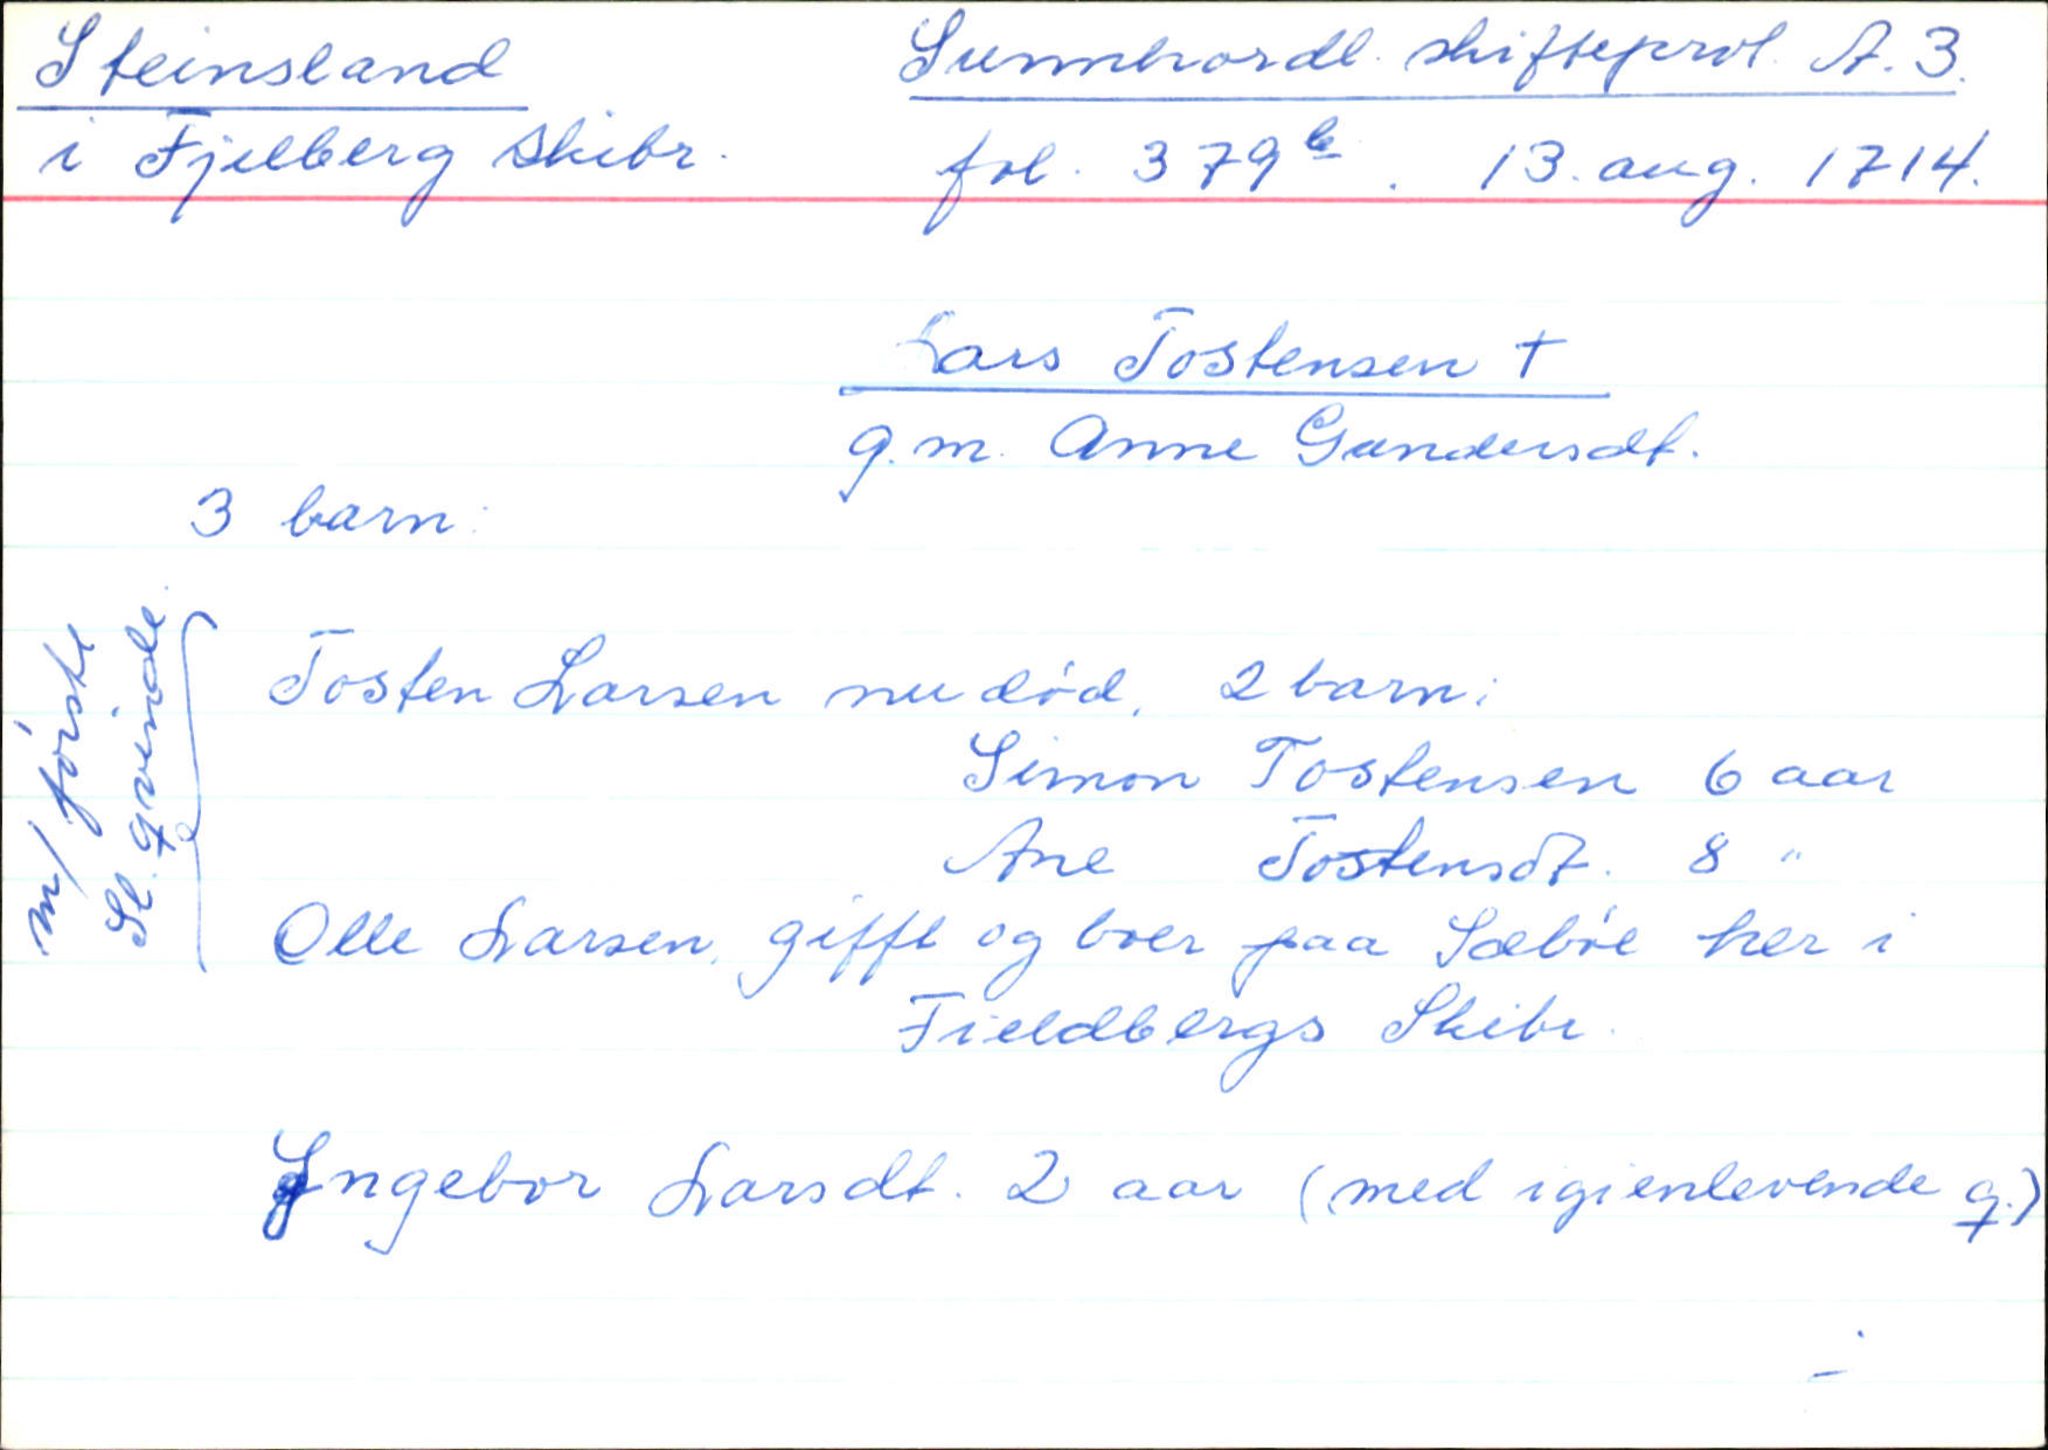 Steinsland
i Fjelberg Skibr.
Sunnhordl. skifteprol. A. 3.
fol. 379b. 13. aug. 1714.
Lars Tostensen †
g.m. Anne Gundersdt.
3 barn:
m/ förste
Sl. qvinde.
Tosten Larsen nu död, 2 barn:
Simon Tostensen 6 aar
Ane Tostensdt. 8 "
Olle Larsen, gifft og boer paa Sæböe her i
Fieldbergs Skibr.
Yngebor Larsdt. 2 aar (med igienlevende q.)